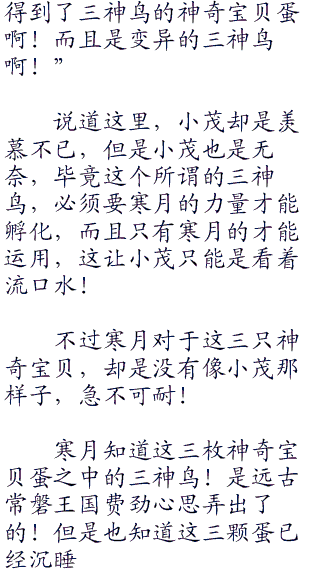 得到了三神鸟的神奇宝贝蛋
啊！而且是变异的三神鸟
啊！”
说道这里，小茂却是羡
慕不已，但是小茂也是无
奈，毕竟这个所谓的三神
鸟，必须要寒月的力量才能
孵化，而且只有寒月的才能
运用，这让小茂只能是看着
流口水！
不过寒月对于这三只神
奇宝贝，却是没有像小茂那
样子，急不可耐！
寒月知道这三枚神奇宝
贝蛋之中的三神鸟！是远古
常磐王国费劲心思弄出了
的！但是也知道这三颗蛋已
经沉睡